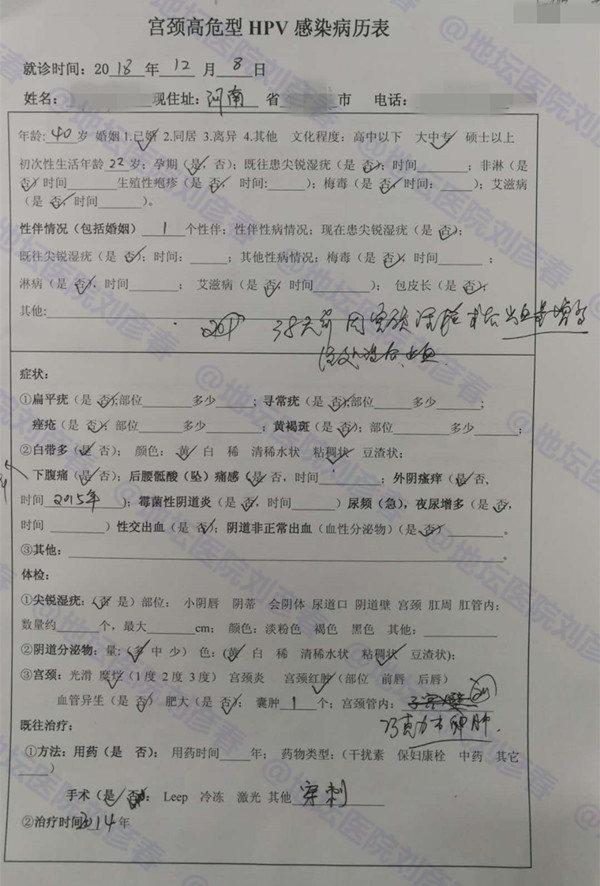 宫颈高危型 HPV 感染病历表
就诊时间：2018 年 12 月 8 日
姓名： 现住址：河南 省 市 电话：
年龄:40 岁 婚姻 1.已婚 2.同居 3.离异 4.其他 文化程度：高中以下 大中专 硕士以上
初次性生活年龄 22 岁；孕期（是，否）；既往患尖锐湿疣（是 否）；时间 ；非淋（是
否）时间 生殖性疱疹（是 否， 时间: ）；梅毒（是 否，时间: ）；艾滋病
（是 否，时间 ）。
性伴情况（包括婚姻） 1 个性伴；性伴性病情况：现在患尖锐湿疣（是 否）；
既往尖锐湿疣（是 否）；时间： ；其他性病情况：梅毒（是 否），时间 ；
淋病（是 否，时间 ； 艾滋病（是 否，时间 ）； 包皮长（是 否），
其他:
症状：
①扁平疣（是 否）;部位 多少 ；寻常疣（是 否）;部位 多少 ；
痤疮（是 否）；部位 多少 ；黄褐斑（是 否）；部位 多少 ；
②白带多（是 否）； 颜色： 黄 白 稀 清稀水状 粘稠状 豆渣状；
下腹痛（是 否）；后腰骶酸（坠）痛感（是 否，时间 ）；外阴瘙痒（是 否，
时间 2015年 ）；霉菌性阴道炎（是 否，时间 ）尿频（急），夜尿增多（是 否，
时间 ）性交出血（是 否；阴道非正常出血（血性分泌物）（是 否） 。
③其他： 。
体检：
①尖锐湿疣:（否 是）部位： 小阴唇 阴蒂 会阴体 尿道口 阴道壁 宫颈 肛周 肛管内；
数量约 个，最大 cm； 颜色：淡粉色 褐色 黑色 其他：
②阴道分泌物：量:（多 中 少） 色:（黄 白 稀 清稀水状 粘稠状 豆渣状）；
③宫颈：光滑 糜烂（1度 2度 3度） 宫颈炎 宫颈红肿（部位 前唇 后唇）
血管异生（是 否） 肥大（是 否）； 囊肿 1 个；宫颈管内：
巧克力卵肿.
既往治疗：
①方法：用药（是 否）： 用药时间 年； 药物类型:（干扰素 保妇康栓 中药 其它
）
手术（是 否）： Leep 冷冻 激光 其他 穿刺
②治疗时间2014年
@地坛医院刘彦春